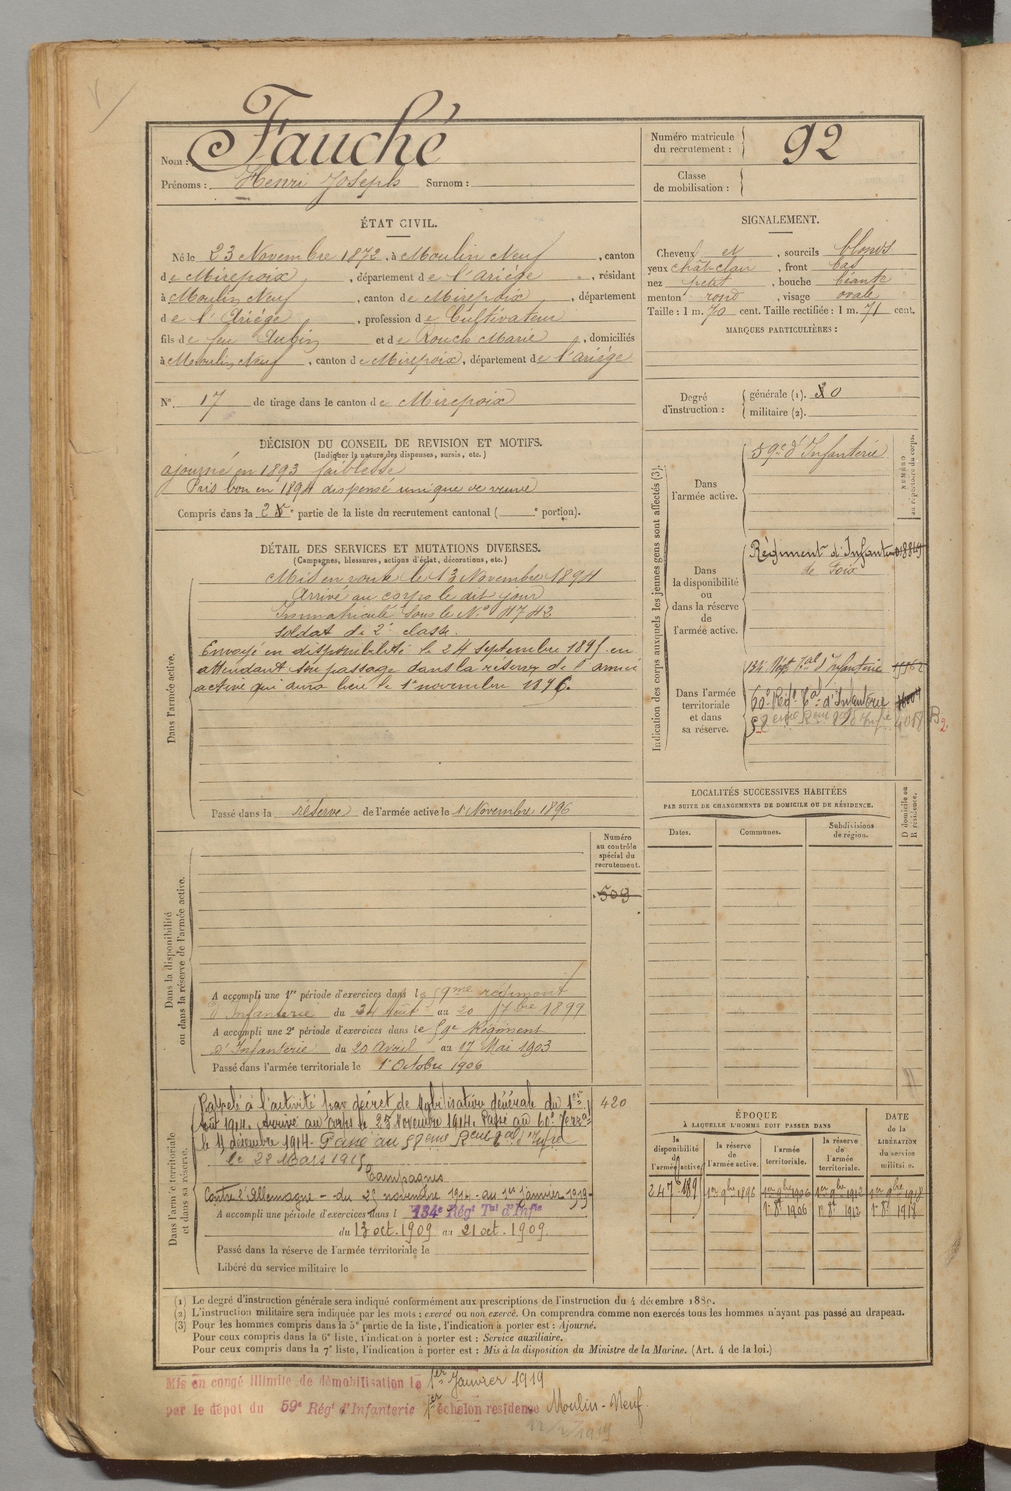 Nom : Fauché
Prénoms : Henri Joseph Surnom :
Numéro matricule du recrutement : 92
Classe de mobilisation :
ÉTAT CIVIL.
Né le 23 Novembre 1872, à Moulin Neuf, canton
de Mirepoix, département de l'Ariége, résidant
à Moulin Neuf, canton de Mirepoix, département
de l'Ariége, profession de Cultivateur
fils de feu Aubin et de Rouch Marie, domiciliés
à Moulin Neuf, canton de Mirepoix, département de l'ariége
N° 17 de tirage dans le canton de Mirepoix
SIGNALEMENT.
Cheveux et , sourcils blonds
yeux chât-clair , front bas
nez petit , bouche béante
menton rond , visage ovale
Taille : 1 m. 70 cent. Taille rectifiée : 1 m. 71 cent.
MARQUES PARTICULIÈRES :
Degré d'instruction :
générale (1). 0
militaire (2).
DÉCISION DU CONSEIL DE REVISION ET MOTIFS.
(Indiquer la nature des dispenses, sursis, etc.)
ajourné en 1893 faiblesse
Pris bon en 1894 dispensé unique de veuve
Compris dans la 2 e partie de la liste du recrutement cantonal ( e portion).
DÉTAIL DES SERVICES ET MUTATIONS DIVERSES.
(Campagnes, blessures, actions d'éclat, décorations, etc.)
Dans l'armée active.
Mis en route le 13 Novembre 1894
Arrivé au corps le dit jour
Immatriculé sous le N° 4742
soldat de 2e classe.
Envoyé en disponibilité le 24 septembre 1895 en
attendant son passage dans la réserve de l'armée
active qui aura lieu le 1er novembre 1896.
Passé dans la réserve de l'armée active le 1er Novembre 1896
Indication des corps auxquels les jeunes gens sont affectés (3).
NUMÉRO au répertoire du corps.
Dans l'armée active.
59e d'Infanterie
Dans la disponibilité ou dans la réserve de l'armée active.
Régiment d'Infanterie
de Foix
Dans l'armée territoriale et dans sa réserve.
134e Régt Tal d'Infanterie
60e Régt Tal d'Infanterie
LOCALITÉS SUCCESSIVES HABITÉES
PAR SUITE DE CHANGEMENTS DE DOMICILE OU DE RÉSIDENCE.
Dates.
Communes.
Subdivisions de région.
D domicile ou R résidence.
Dans la disponibilité ou dans la réserve de l'armée active.
Numéro au contrôle spécial du recrutement.
503
A accompli une 1re période d'exercices dans le 59me régiment
d'Infanterie du 24 Août au 20 7bre 1899
A accompli une 2e période d'exercices dans le 59e Régiment
d'Infanterie du 20 Avril au 17 Mai 1903
Passé dans l'armée territoriale le 1er Octobre 1906
Dans l'armée territoriale et dans sa réserve.
420
Rappelé à l'activité par décret de Mobilisation Générale du 1er
Août 1914. Arrivé au corps le 25 Novembre 1914. Passé au 60e Terral
le 11 décembre 1914. Passé au 58eme Regt Tal d'Infrie
le 28 Mars 1915
Campagnes
Contre l'Allemagne - du 25 novembre 1914 - au 1er janvier 1919.
A accompli une période d'exercices dans l 134e Régt Tal d'Infie
du 13 oct. 1909 au 21 oct. 1909
Passé dans la réserve de l'armée territoriale le
Libéré du service militaire le
ÉPOQUE
À LAQUELLE L'HOMME DOIT PASSER DANS
DATE de la LIBÉRATION du service militaire.
la disponibilité de l'armée active.
la réserve de l'armée active.
l'armée territoriale.
la réserve de l'armée territoriale.
1er 9bre 1896
1er 9bre 1906
1er 9bre 1912
1er 9bre 1918
1er 8e 1906
1er 8e 1912
1er 8e 1918
(1) Le degré d'instruction générale sera indiqué conformément aux prescriptions de l'instruction du 4 décembre 1889.
(2) L'instruction militaire sera indiquée par les mots : exercé ou non exercé. On comprendra comme non exercés tous les hommes n'ayant pas passé au drapeau.
(3) Pour les hommes compris dans la 5e partie de la liste, l'indication à porter est : Ajourné.
Pour ceux compris dans la 6e liste, l'indication à porter est : Service auxiliaire.
Pour ceux compris dans la 7e liste, l'indication à porter est : Mis à la disposition du Ministre de la Marine. (Art. 4 de la loi.)
Mis en congé illimité de démobilisation le 1er Janvier 1919
par le dépôt du 59e Régt d'Infanterie 1er échelon résidence Moulin-Neuf.